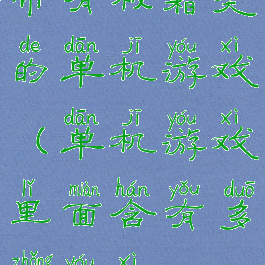 有
de dān jī yóu xì
的单机游戏
dān jī yóu xì
(单机游戏
lǐ miàn hán yǒu duō
里面含有多
zhǒng yóu xì